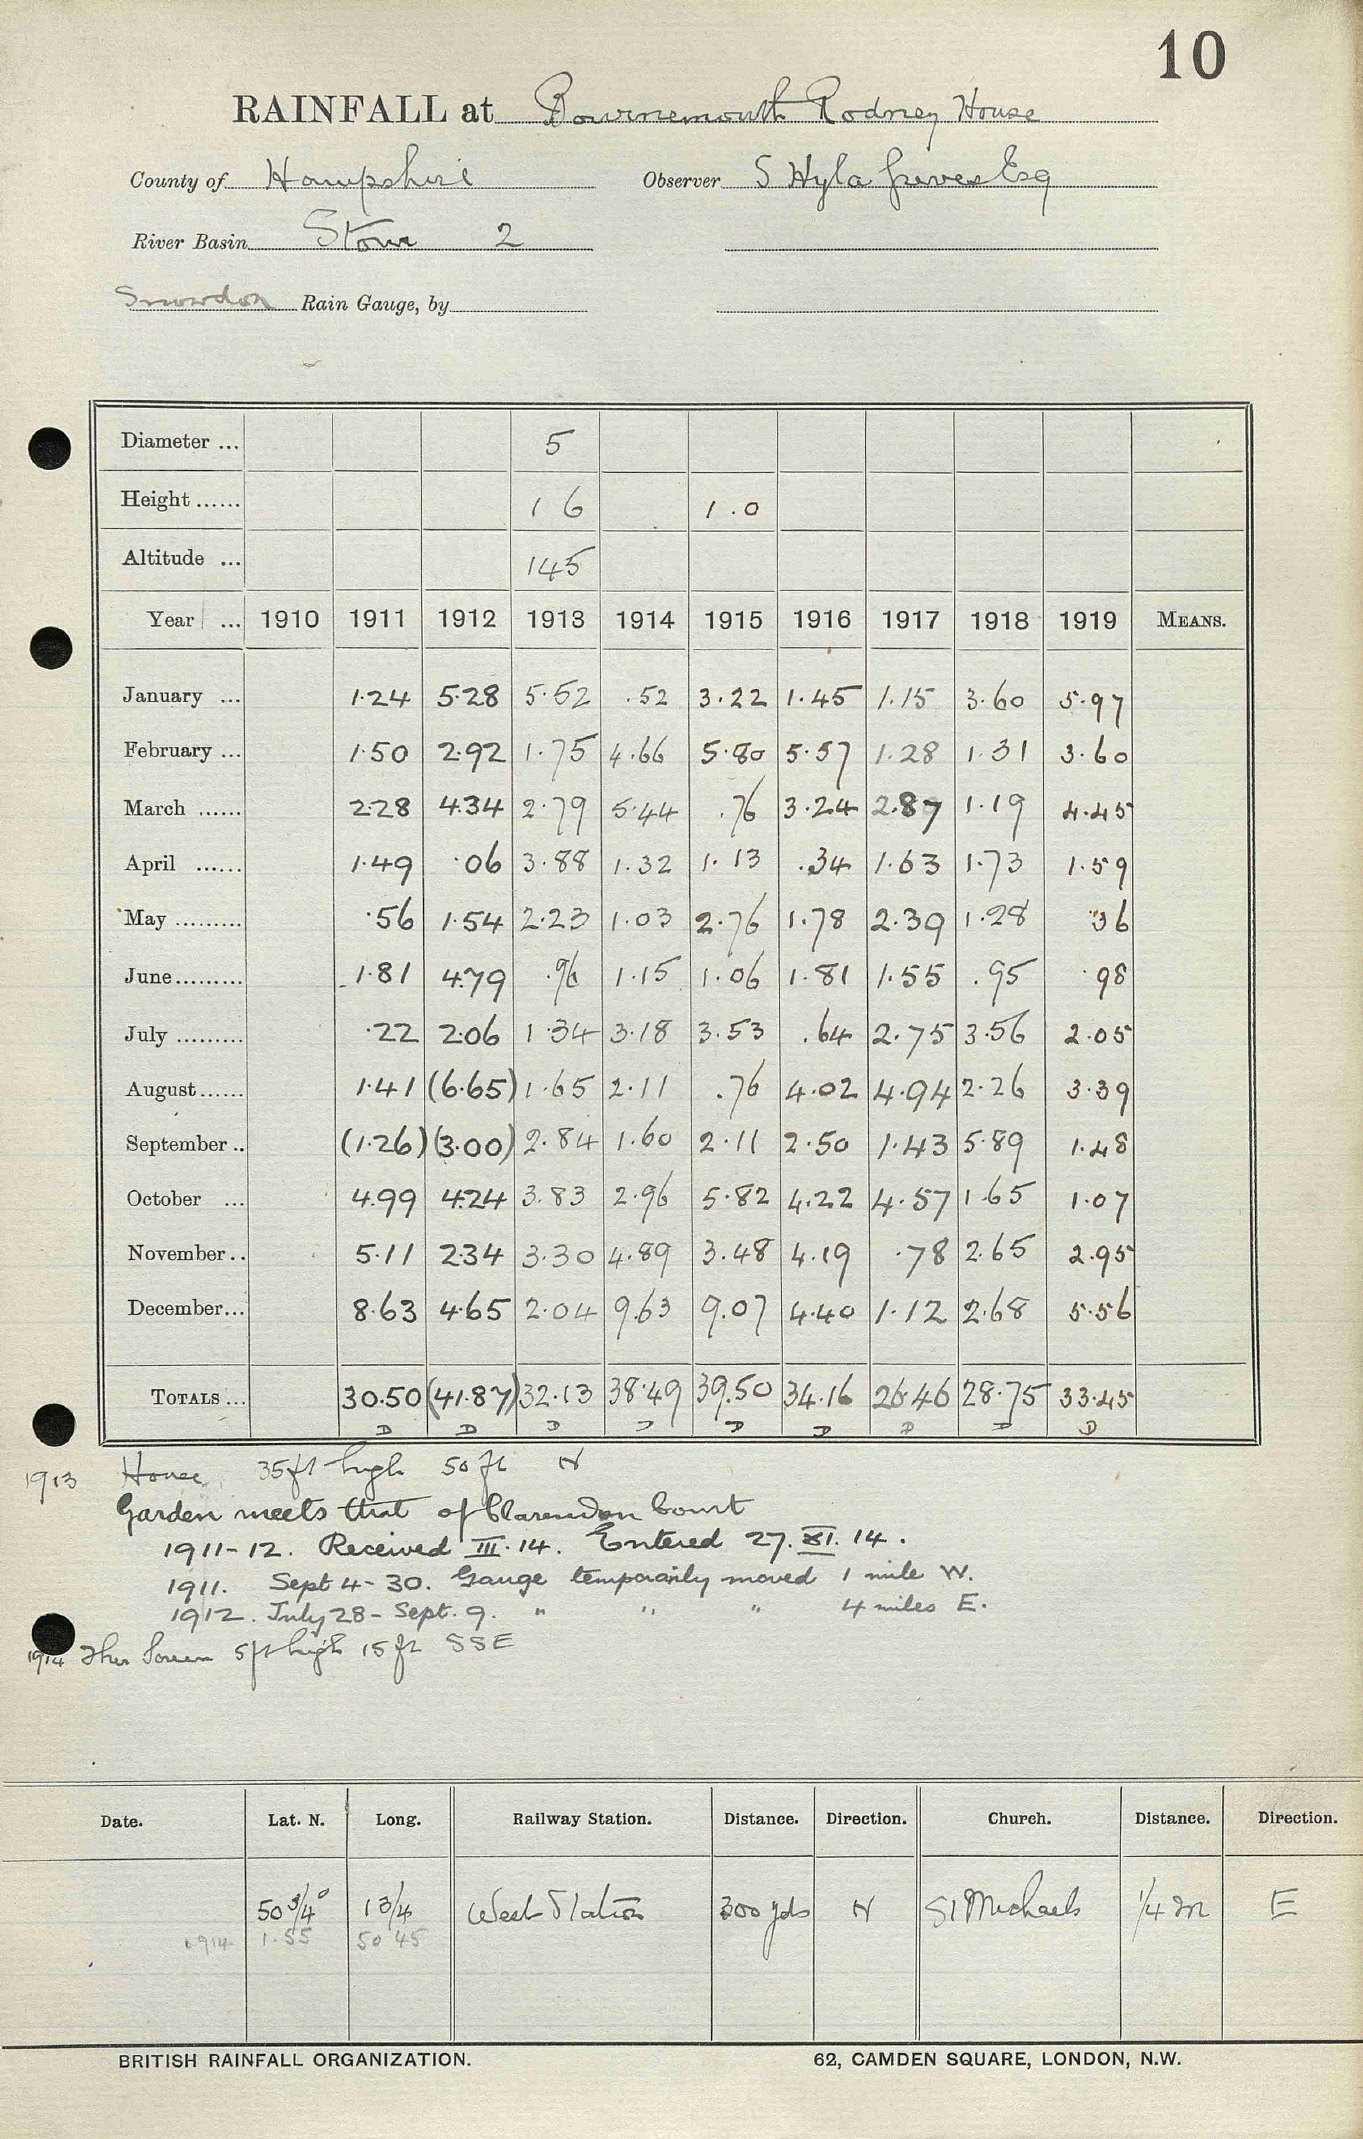 10
RAINFALL at Bournemouth Rodney House
County of Hampshire Observer S Hyla Greves Esq
River Basin Stour 2
Snowdon Rain Gauge, by
Diameter ... 5
Height ...... 1 6 1.0
Altitude ... 145
Year ... 1910 1911 1912 1913 1914 1915 1916 1917 1918 1919 MEANS.
January ... 1.24 5.28 5.52 .52 3.22 1.45 1.15 3.60 5.97
February ... 1.50 2.92 1.75 4.66 5.80 5.57 1.28 1.31 3.60
March ...... 2.28 4.34 2.79 5.44 .76 3.24 2.87 1.19 4.45
April ...... 1.49 .06 3.88 1.32 1.13 .34 1.63 1.73 1.59
May ......... .56 1.54 2.23 1.03 2.76 1.78 2.39 1.28 .36
June......... 1.81 4.79 .96 1.15 1.06 1.81 1.55 .95 .98
July ......... .22 2.06 1.34 3.18 3.53 .64 2.75 3.56 2.05
August...... 1.41 (6.65) 1.65 2.11 .76 4.02 4.94 2.26 3.39
September .. (1.26) (3.00) 2.84 1.60 2.11 2.50 1.43 5.89 1.48
October ... 4.99 4.24 3.83 2.96 5.82 4.22 4.57 1.65 1.07
November .. 5.11 2.34 3.30 4.89 3.48 4.19 .78 2.65 2.95
December... 8.63 4.65 2.04 9.63 9.07 4.40 1.12 2.68 5.56
TOTALS ... 30.50 (41.87) 32.13 38.49 39.50 34.16 26.46 28.75 33.45
D D D D D D D D D
1913 House 35 ft high 50 ft N
Garden meets that of Clarendon Court
1911-12. Received III.14. Entered 27.XI.14.
1911. Sept 4-30. Gauge temporarily moved 1 mile W.
1912. July 28 - Sept. 9. " " " 4 miles E.
1914 Ther Screen 5 ft high 15 ft SSE
Date. Lat. N. Long. Railway Station. Distance. Direction. Church. Distance. Direction.
50 3/4° 1 3/4 West Station 300 yds N St Michaels 1/4 m E
1914 1.55 50 45
BRITISH RAINFALL ORGANIZATION. 62, CAMDEN SQUARE, LONDON, N.W.